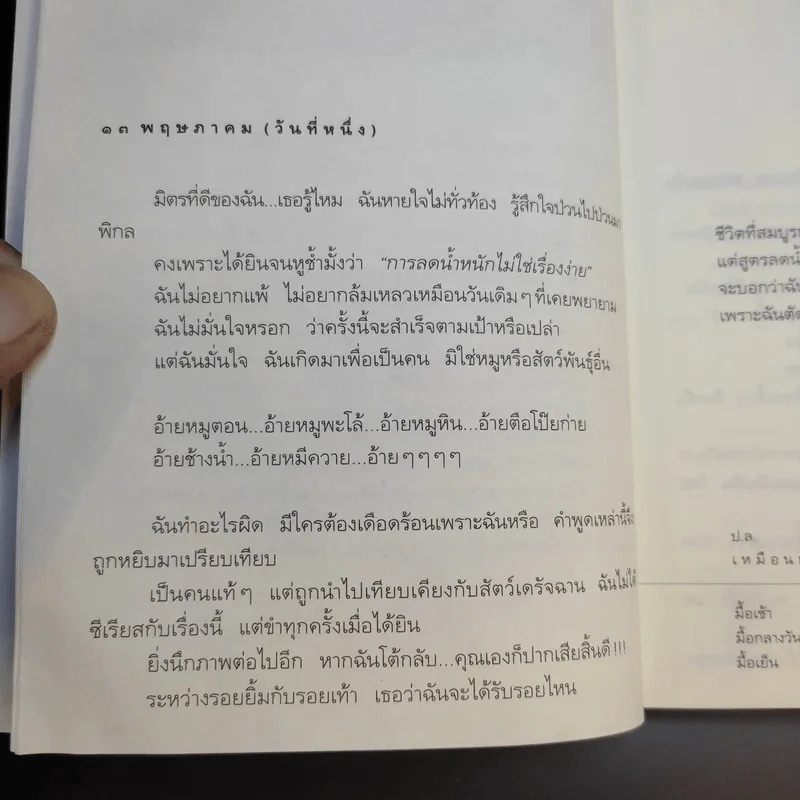 ๑๓ พฤษภาคม (วันที่หนึ่ง)
มิตรที่ดีของฉัน...เธอรู้ไหม ฉันหายใจไม่ทั่วท้อง รู้สึกใจป่วนไปป่วนมา
พิกล
คงเพราะได้ยินจนหูช้ำมั้งว่า "การลดน้ำหนักไม่ใช่เรื่องง่าย"
ฉันไม่อยากแพ้ ไม่อยากล้มเหลวเหมือนวันเดิมๆ ที่เคยพยายาม
ฉันไม่มั่นใจหรอก ว่าครั้งนี้จะสำเร็จตามเป้าหรือเปล่า
แต่ฉันมั่นใจ ฉันเกิดมาเพื่อเป็นคน มิใช่หมูหรือสัตว์พันธุ์อื่น
อ้ายหมูตอน...อ้ายหมูพะโล้...อ้ายหมูหิน...อ้ายตือโป๊ยก่าย
อ้ายช้างน้ำ...อ้ายหมีควาย...อ้ายๆๆๆๆ
ฉันทำอะไรผิด มีใครต้องเดือดร้อนเพราะฉันหรือ คำพูดเหล่านี้จึง
ถูกหยิบมาเปรียบเทียบ
เป็นคนแท้ๆ แต่ถูกนำไปเทียบเคียงกับสัตว์เดรัจฉาน ฉันไม่ได้
ซีเรียสกับเรื่องนี้ แต่ขำทุกครั้งเมื่อได้ยิน
ยิ่งนึกภาพต่อไปอีก หากฉันโต้กลับ...คุณเองก็ปากเสียสิ้นดี!!!
ระหว่างรอยยิ้มกับรอยเท้า เธอว่าฉันจะได้รับรอยไหน
ชีวิตที่สมบูรณ์
แต่สูตรลดน้ำ
จะบอกว่าฉัน
เพราะฉันตัด
ป.ล.
เหมือน
มื้อเช้า
มื้อกลางวัน
มื้อเย็น